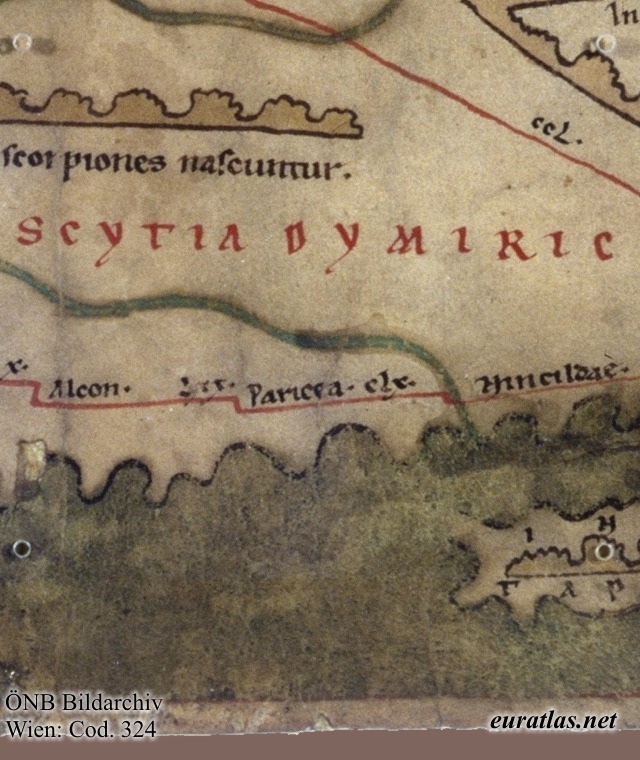 In
ccL.
scorpiones nascuntur.
SCYTIA DYMIRIC
x.
Alcon.
Paricea. clx.
I
H
T A P
ÖNB Bildarchiv
Wien: Cod. 324
euratlas.net